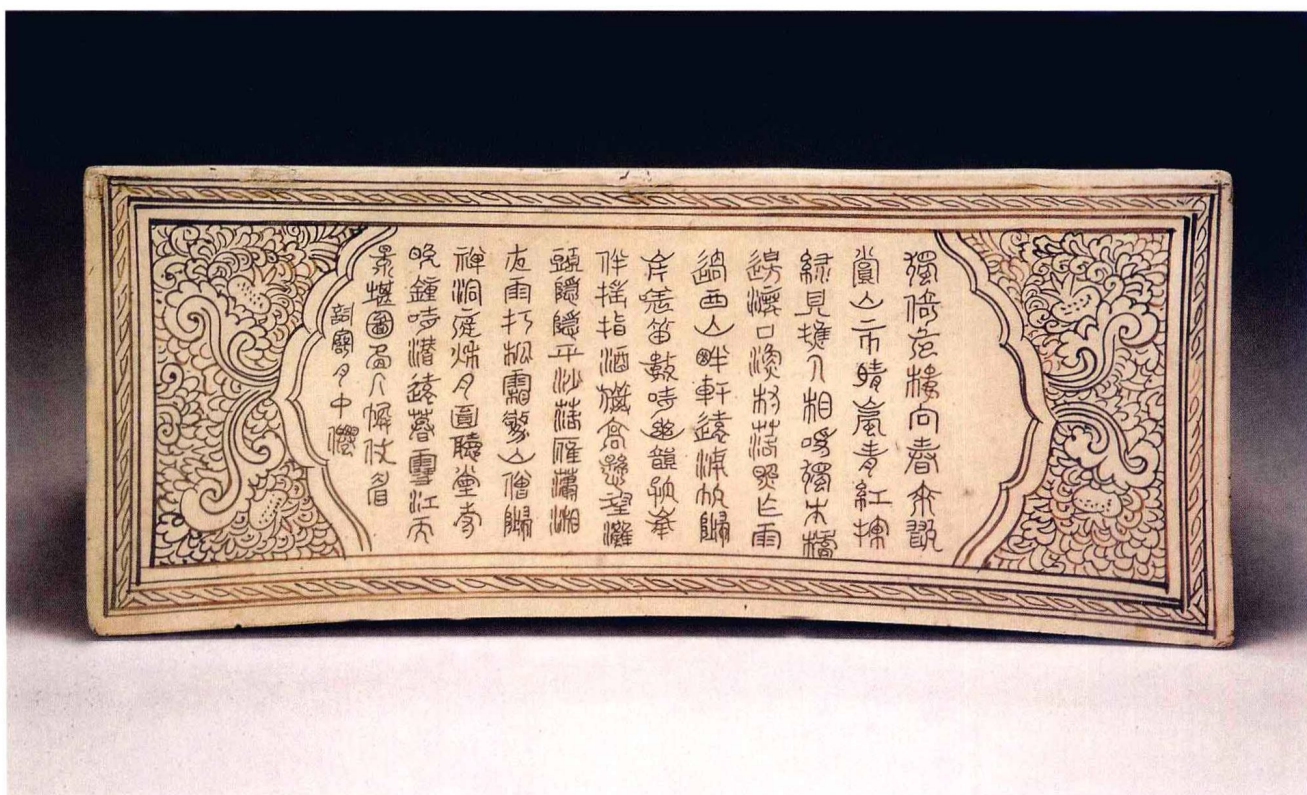 獨倚危樓向春來翫
賞山市晴嵐青紅
綠見樵人相喚獨木橋
邊口漁村落照雨
過西山畔軒遠浦帆歸
岸笛數時幽韻孤
伴搖指酒旗高懸望灘
頭隱隱平沙落雁瀟湘
夜雨打松霜繁山僧歸
禪洞庭秋月圓聽堂寺
晚鍾時潛遠暮雪江天
景堪圖畫人懈仗看
詞寄月中僊